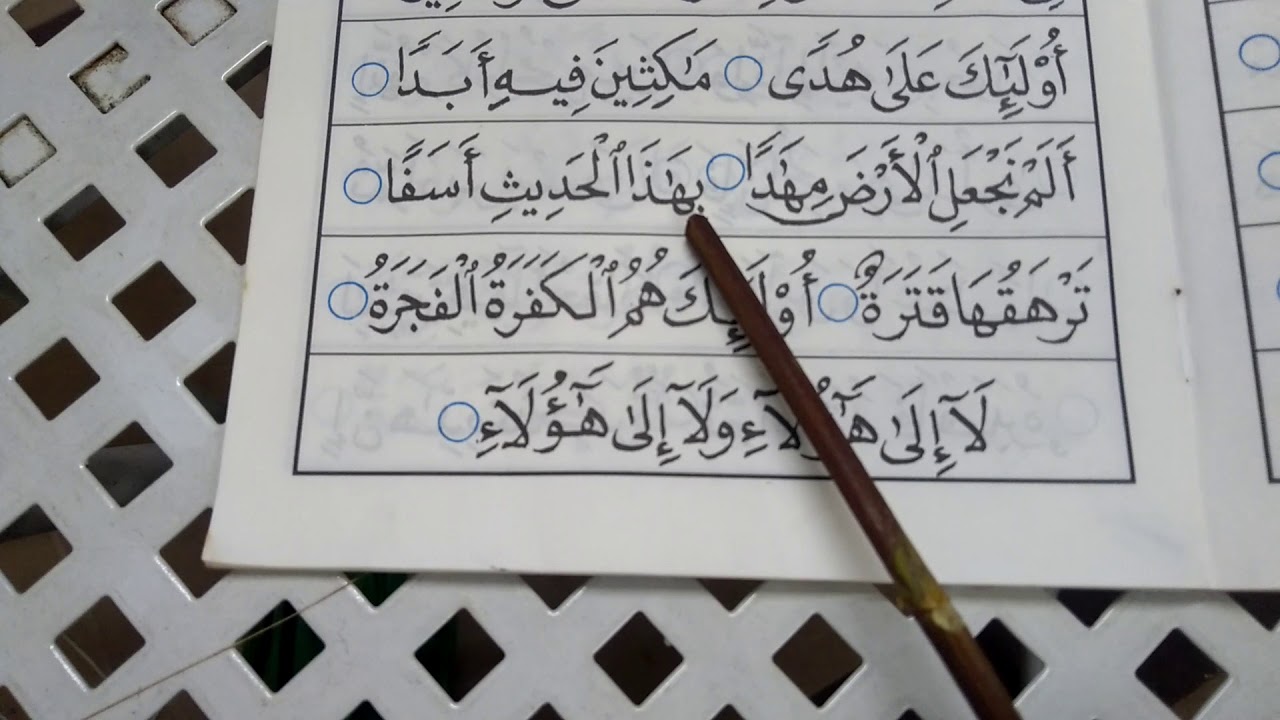 أُوْلَٰٓئِكَ عَلَىٰ هُدًى ○ مَٰكِثِينَ فِيهِ أَبَدًا ○
أَلَمْ نَجْعَلِ ٱلْأَرْضَ مِهَٰدًا ○ بِهَٰذَا ٱلْحَدِيثِ أَسَفًا ○
تَرْهَقُهَا قَتَرَةٌ ○ أُوْلَٰٓئِكَ هُمُ ٱلْكَفَرَةُ ٱلْفَجَرَةُ ○
لَآ إِلَىٰ هَٰٓؤُلَآءِ وَلَآ إِلَىٰ هَٰٓؤُلَآءِ ○